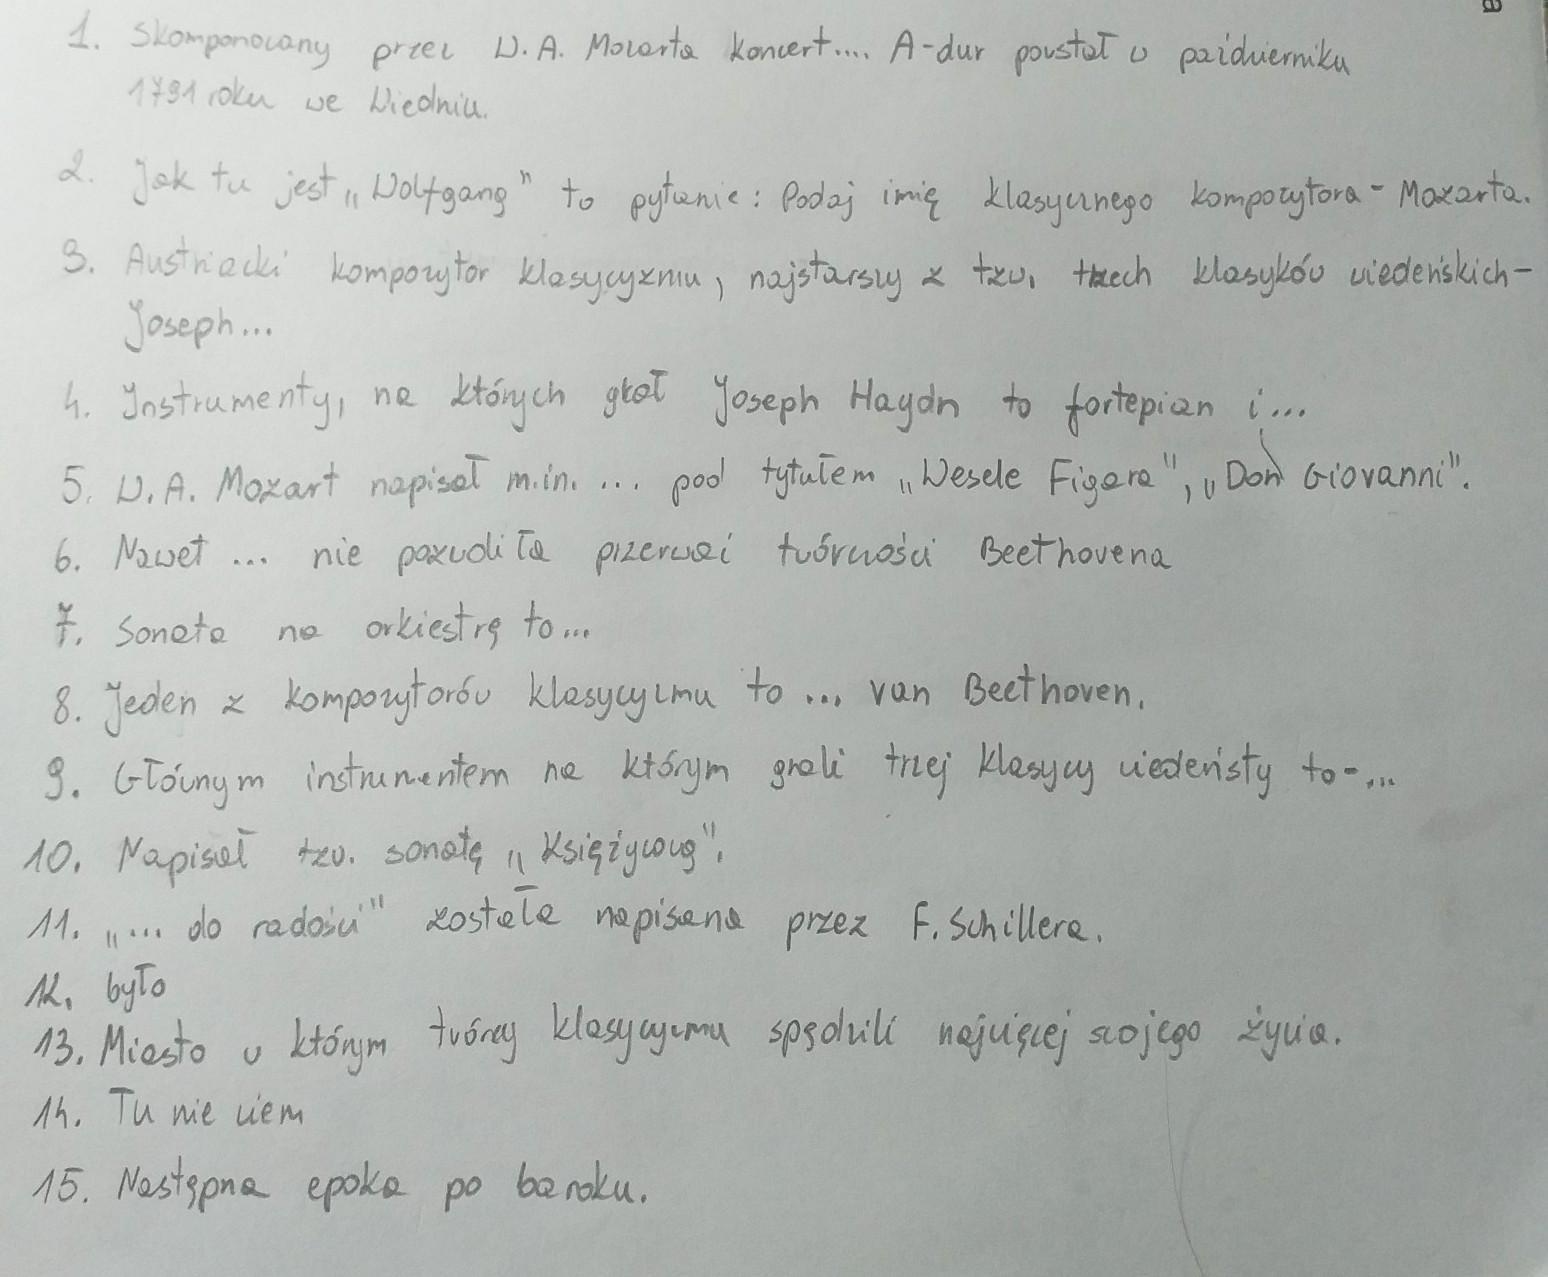 1. Skomponowany przez W. A. Mozarta koncert.... A-dur powstał w październiku
1791 roku we Wiedniu.
2. Jak tu jest „Wolfgang" to pytanie: Podaj imię klasycznego kompozytora - Mozarta.
3. Austriacki kompozytor klasycyzmu, najstarszy z tzw. trzech klasyków wiedeńskich-
Joseph...
4. Instrumenty, na których grał Joseph Haydn to fortepian i...
5. W. A. Mozart napisał m.in. ... pod tytułem „Wesele Figara", „Don Giovanni".
6. Nawet ... nie pozwoliła przerwać twórczości Beethovena
7. Sonata na orkiestrę to...
8. Jeden z kompozytorów klasycyzmu to ... van Beethoven.
9. Głównym instrumentem na którym grali trzej klasycy wiedeńscy to-...
10. Napisał tzw. sonatę „Księżycową".
11. „... do radości" została napisana przez F. Schillera.
12. było
13. Miasto w którym twórcy klasycyzmu spędzili najwięcej swojego życia.
14. Tu nie wiem
15. Następna epoka po baroku.